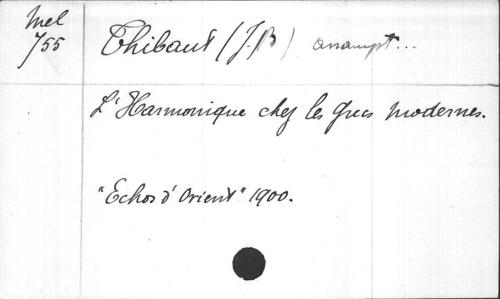 Mel
755
Thibaut (J.-B) assompt...
L'Harmonique chez les Grecs modernes.
"Echos d'Orient" 1900.